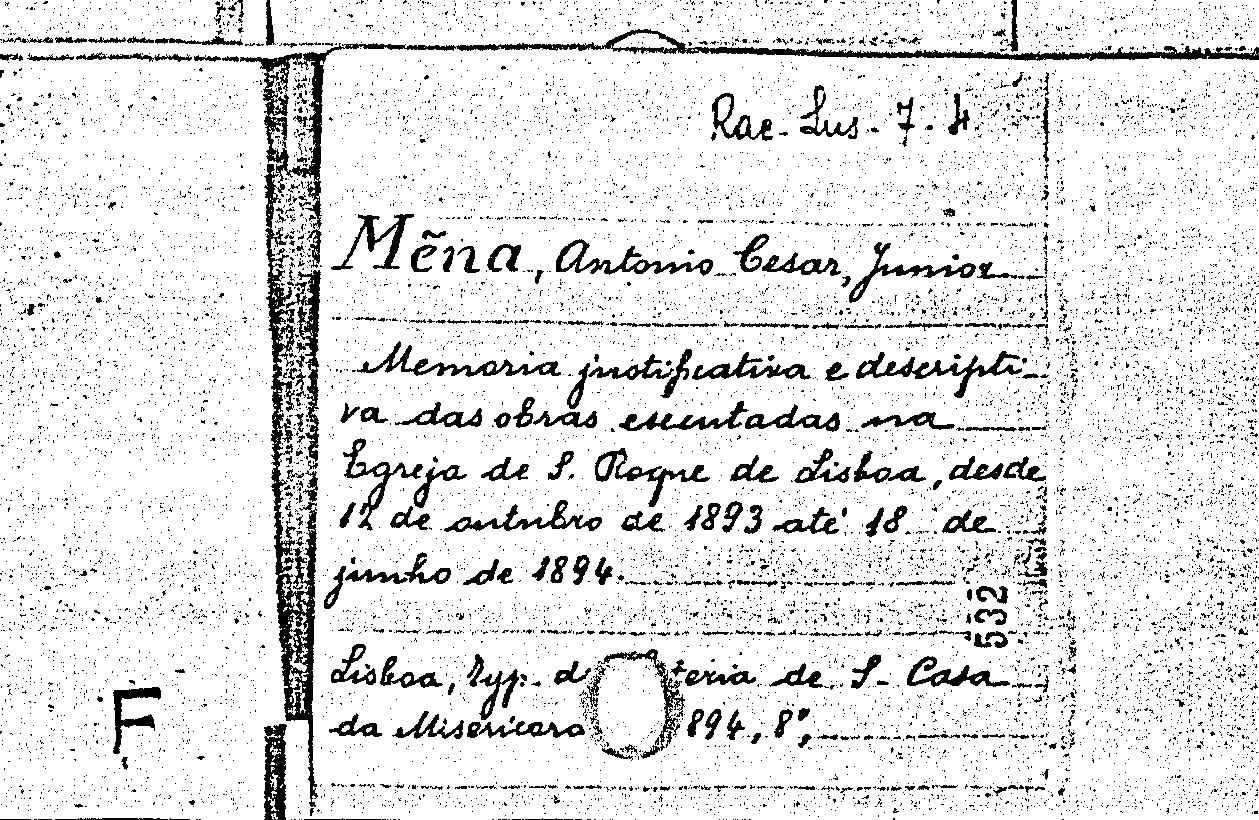 Rac. Lus. 7. 4
Mẽna, Antonio Cesar, Junior
Memoria justificativa e descripti-
va das obras executadas na
Egreja de S. Roque de Lisboa, desde
12 de outubro de 1893 até 18 de
junho de 1894.
532
Lisboa, Typ. d teria de S. Casa
da Misericord 894, 8º,
F